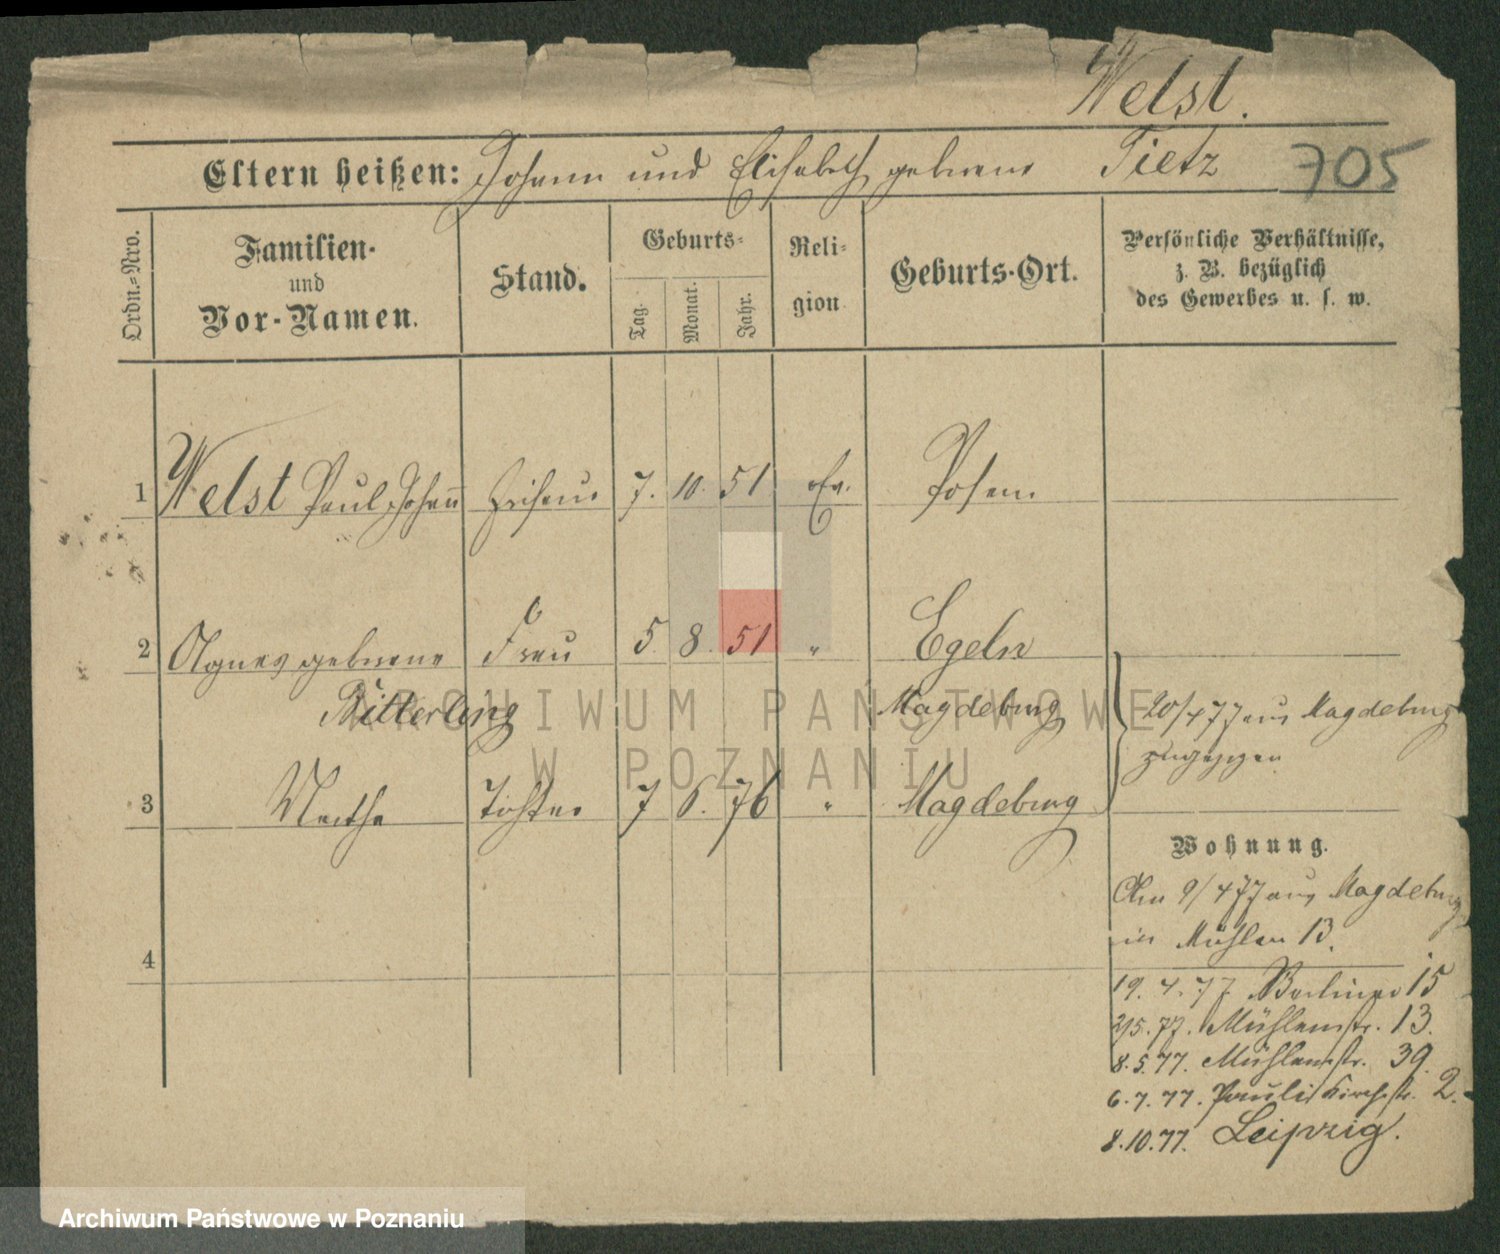 Welst.
Eltern heißen: Johann und Elisabeth geborene Tietz 705
Ordn.-Nro. Familien- und Vor-Namen. Stand. Geburts- Tag. Monat. Jahr. Religion Geburts-Ort. Persönliche Verhältnisse, z. B. bezüglich des Gewerbes u. s. w.
1 Welst Paul Johann Friseur 7. 10. 51 Ev. Posen
2 Agnes geborene Frau 5 8. 51 " Egeln
Bitterling Magdeburg 20/4 77 aus Magdeburg
zugezogen
3 Martha Tochter 7 6. 76 " Magdeburg
Wohnung.
9/4 77 aus Magdeburg
in Mühlen 13.
4
19. 4. 77. Berliner 15
2/5. 77. Mühlenstr. 13.
8. 5. 77. Mühlenstr. 39.
6. 7. 77. Paulikirchstr. 2.
8. 10. 77. Leipzig.
ARCHIWUM PAŃSTWOWE
W POZNANIU
Archiwum Państwowe w Poznaniu